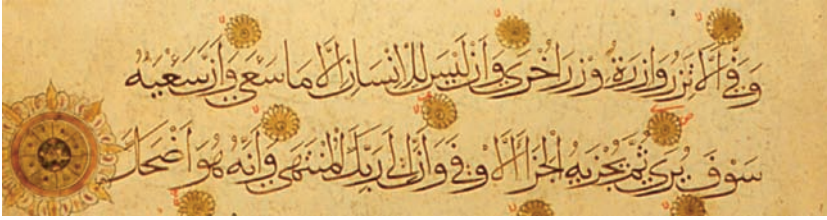 وَفَّى أَلَّا تَزِرُ وَازِرَةٌ وِزْرَ أُخْرَى وَأَنْ لَيْسَ لِلْإِنْسَانِ إِلَّا مَا سَعَى وَأَنَّ سَعْيَهُ
سَوْفَ يُرَى ثُمَّ يُجْزَيهُ الْجَزَاءَ الْأَوْفَى وَأَنَّ إِلَى رَبِّكَ الْمُنْتَهَى وَأَنَّهُ هُوَ أَضْحَكَ